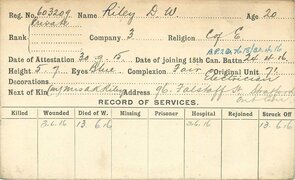 Reg. No. 603209 Name Riley D. W. Age 20
Rank Private Company 3 Religion C of E.
Date of Attestation 30.9.15. Date of joining 15th Can. Battn. 24.4.16.
Height 5.7. Eyes Blue. Complexion Fair Original Unit
Decorations Electrician
Next of Kin Address 96. Falstaff St.
RECORD OF SERVICES.
Killed Wounded Died of W. Missing Prisoner Hospital Rejoined Struck Off
3.6.16 13.6.16 3.6.16 13.6.16